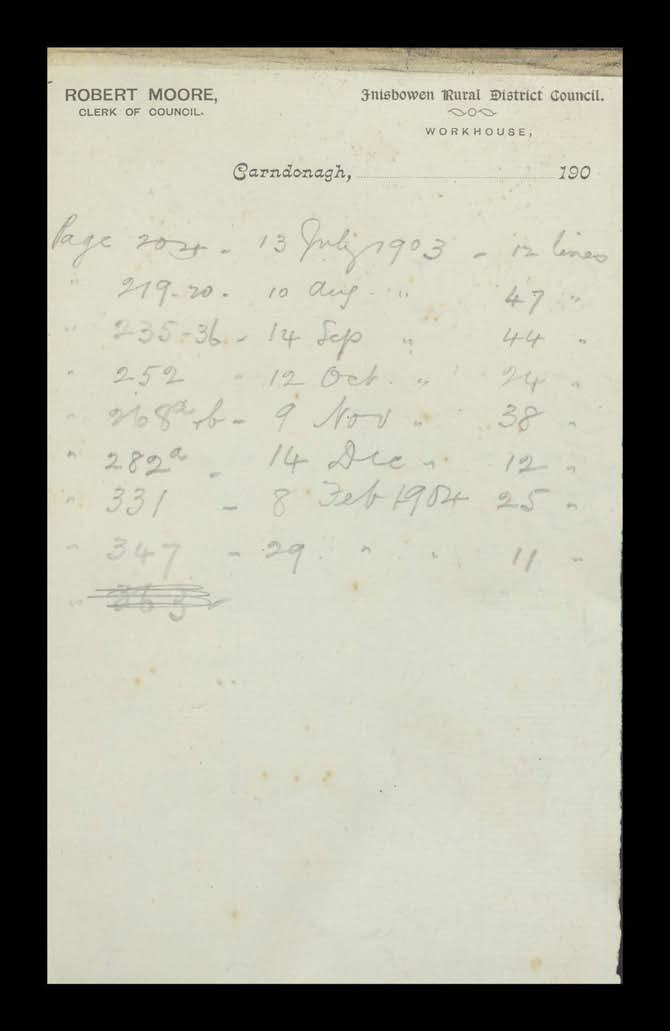 ROBERT MOORE,
CLERK OF COUNCIL.
Inishowen Rural District Council.
WORKHOUSE,
Carndonagh, 190
Page 204 - 13 July 1903 - 12 lines
" 219-20 - 10 Aug " 47 "
" 235-36 - 14 Sep " 44 "
" 252 - 12 Oct. " 24 "
" 268a & b - 9 Nov " 38 "
" 282a - 14 Dec " 12 "
" 331 - 8 Feb 1904 25 "
" 347 - 29 " " 11 "
" 363